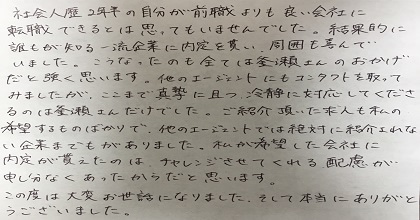 社会人歴2年半の自分が前職よりも良い会社に
転職できるとは思ってもいませんでした。結果的に
誰もが知る一流企業に内定を貰い、周囲も喜んで
いました。こうなったのも全ては釜瀬さんのおかげ
だと強く思います。他のエージェントにもコンタクトを取って
みましたが、ここまで真摯に且つ冷静に対応してくださ
るのは釜瀬さんだけでした。ご紹介頂いた求人も私の
希望するものばかりで、他のエージェントでは絶対に紹介されな
い企業までもがありました。私が希望した会社に
内定が貰えたのは、チャレンジさせてくれる配慮が
申し分なくあったからだと思います。
この度は大変お世話になりました、そして本当にありがと
うございました。